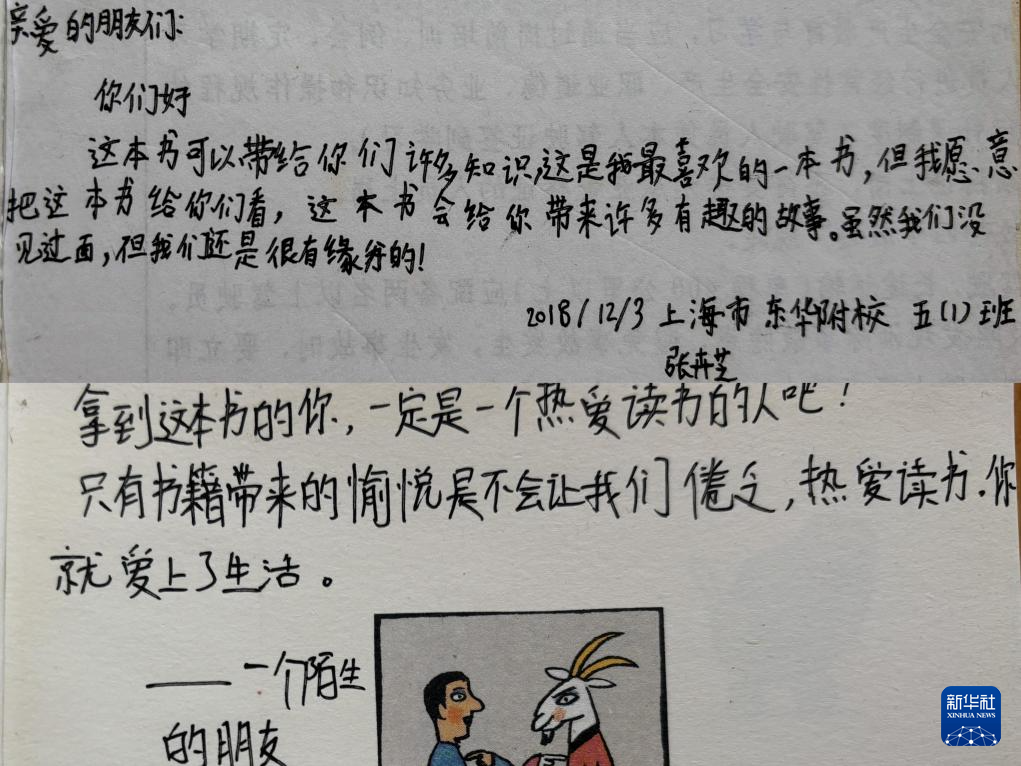 亲爱的朋友们:
你们好
这本书可以带给你们许多知识,这是我最喜欢的一本书,但我愿意
把这本书给你们看,这本书会给你带来许多有趣的故事。虽然我们没
见过面,但我们还是很有缘分的!
2018/12/3 上海市东华附校 五(1)班
张卉芝
拿到这本书的你,一定是一个热爱读书的人吧!
只有书籍带来的愉悦是不会让我们倦乏,热爱读书.你
就爱上了生活。
——一个陌生
的朋友
新华社
XINHUA NEWS